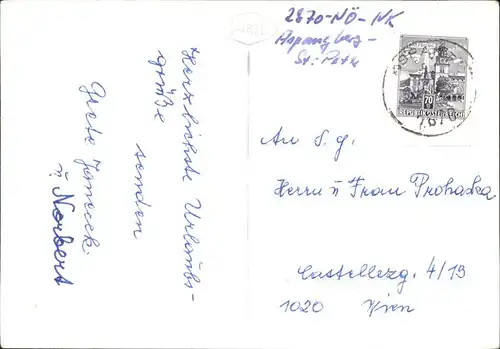 2870-NÖ-NK
Aspangberg-
St. Peter
Herzlichste Urlaubs-
grüße
senden
Grete Janecek
u. Norbert
REPUBLIK ÖSTERREICH
70
7670
An S. g.
Herrn u Frau Prohaska
Castellezg. 4/19
1020 Wien